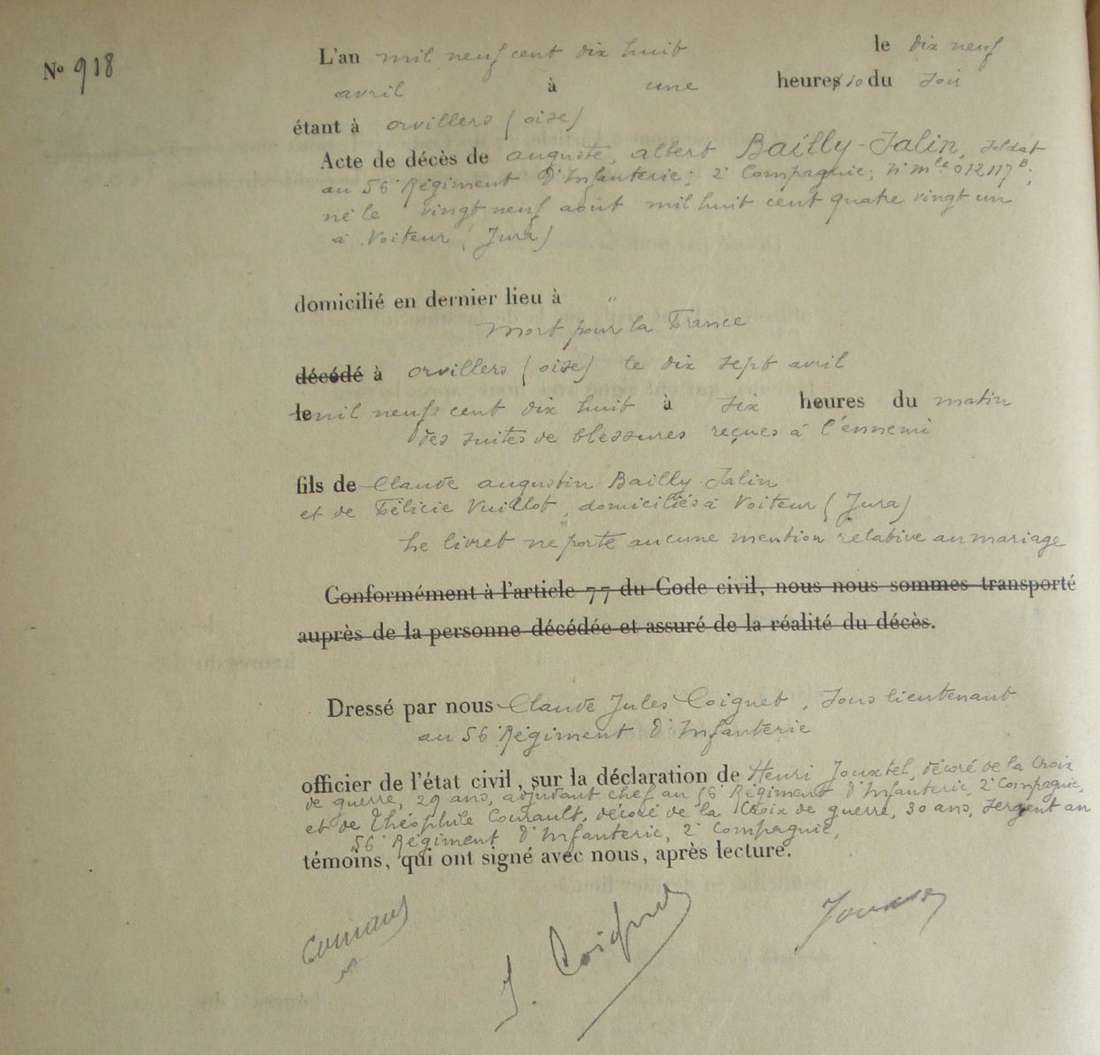 N° 918
L'an mil neuf cent dix huit le dix neuf
avril à une heures 10 du soir
étant à orvillers (oise)
Acte de décès de auguste, albert Bailly-Salin, soldat
au 56e Régiment d'Infanterie; 2e Compagnie; N° mle 012117B;
né le vingt neuf août mil huit cent quatre vingt un
à Voiteur (Jura)
domicilié en dernier lieu à "
Mort pour la France
décédé à orvillers (oise) le dix sept avril
le mil neuf cent dix huit à six heures du matin
des suites de blessures reçues à l'ennemi
fils de Claude augustin Bailly Salin
et de Félicie Vuillot, domiciliés à Voiteur (Jura)
Le livret ne porte aucune mention relative au mariage
Conformément à l'article 77 du Code civil, nous nous sommes transporté
auprès de la personne décédée et assuré de la réalité du décès.
Dressé par nous Claude Jules Coignet, Sous lieutenant
au 56e Régiment d'Infanterie
officier de l'état civil, sur la déclaration de Henri décoré de la Croix
de guerre, 29 ans, adjudant chef au 56e Régiment d'Infanterie, 2e Compagnie,
et de Théophile décoré de la Croix de guerre, 30 ans, Sergent au
56e Régiment d'Infanterie, 2e Compagnie,
témoins, qui ont signé avec nous, après lecture.
J. Coignet